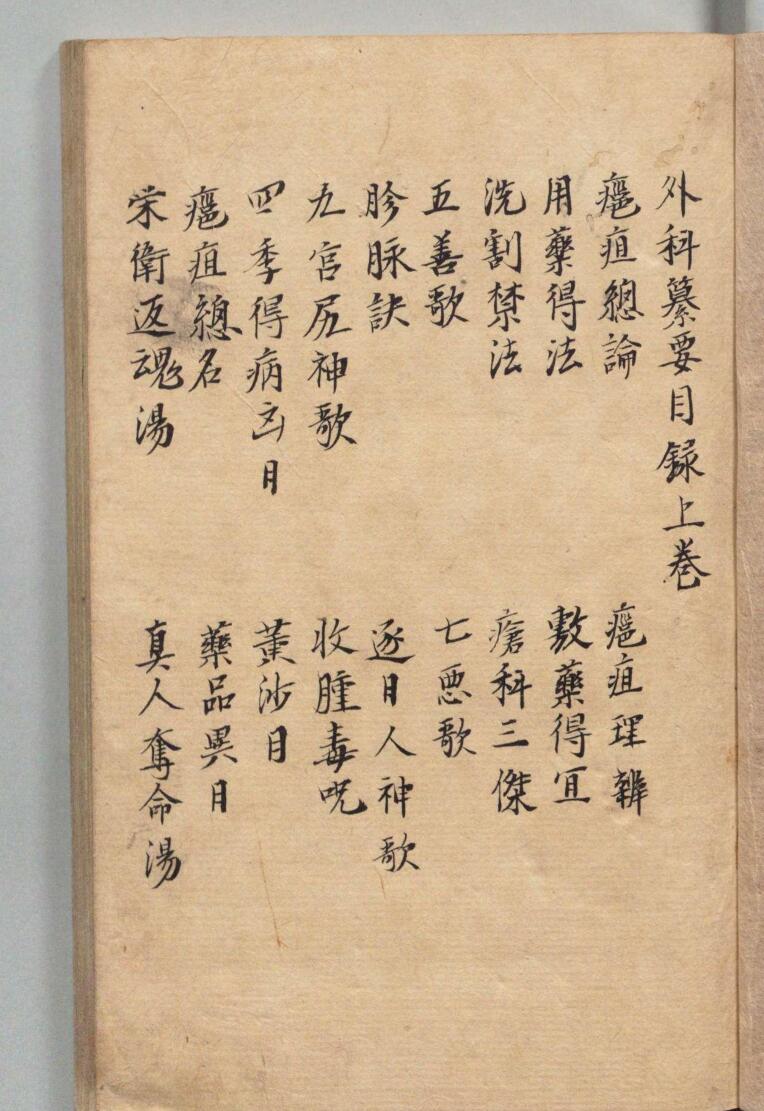 外科纂要目録上卷
癰疽總論 癰疽理辨
用藥得法 敷藥得宜
洗割禁法 瘡科三傑
五善歌 七悪歌
胗脉訣 逐日人神歌
九宮尻神歌 收腫毒咒
四季得病凶日 黄沙日
癰疽總名 藥品異日
栄衛返魂湯 真人奪命湯